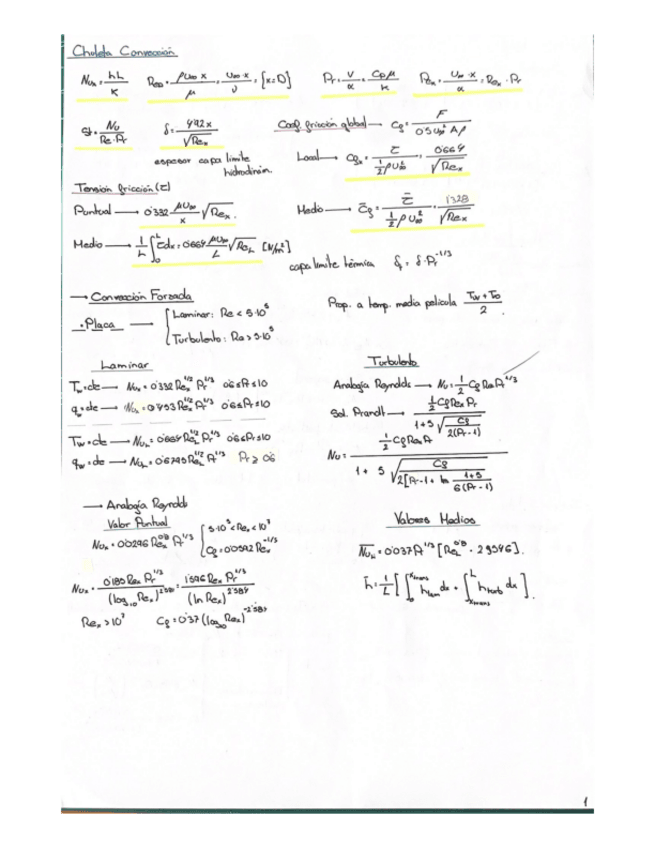 Chuleta Convección
Nuₓ = hL/K   Reₓ = ρU∞ x/μ = U∞·x/ν = [x=D]   Pr = ν/α = Cpμ/K   Peₓ = U∞·x/α = Reₓ·Pr
St = Nu/(Re·Pr)   δ = 4'92x/√Reₓ   Coef. fricción global → Cf = F/(0'5 U∞² A ρ)
espesor capa límite
hidrodinám.
Local → Cfₓ = τ/(½ρU∞²) = 0'664/√Reₓ
Tensión fricción (τ)
Puntual → 0'332 μU∞/x √Reₓ.   Medio → C̄f = τ̄/(½ρU∞²) = 1'328/√Reₓ
Medio → 1/L ∫₀ᴸ τdx = 0'664 μU∞/L √Re_L [N/m²]
capa límite térmica δt = δ·Pr^-1/3
→ Convección Forzada   Prop. a temp. media película (Tw+T∞)/2.
· Placa → { Laminar: Re < 5·10⁵
Turbulento: Re > 5·10⁵
Laminar
Tw = cte → Nuₓ = 0'332 Reₓ^1/2 Pr^1/3   0'6≤Pr≤10
qw = cte → Nuₓ = 0'453 Reₓ^1/2 Pr^1/3   0'6≤Pr≤10
Tw = cte → Nu_L = 0'664 Re_L^1/2 Pr^1/3   0'6≤Pr≤10
qw = cte → Nu_L = 0'6795 Re_L^1/2 Pr^1/3   Pr ≥ 0'6
Turbulento
Analogía Reynolds → Nu = ½ Cf Re Pr^1/3
Sol. Prandt → ½ Cf Reₓ Pr / (1+5 √(Cf/2) (Pr-1))
Nu = ½ Cf Re Pr / (1 + 5 √(Cf/2) [Pr-1 + ln (1+5/6(Pr-1))])
→ Analogía Reynolds
Valor Puntual
Nuₓ = 0'0296 Reₓ^0'8 Pr^1/3 { 5·10⁵ < Reₓ < 10⁷
Cf = 0'0592 Reₓ^-1/5
Nuₓ = 0'185 Reₓ Pr^1/3 / (log₁₀ Reₓ)^2'584 = 1'596 Reₓ Pr^1/3 / (ln Reₓ)^2'584
Reₓ > 10⁷   Cf = 0'37 (log₁₀ Reₓ)^-2'584
Valores Medios
N̄u_L = 0'037 Pr^1/3 [Re_L^0'8 - 23546].
h̄ = 1/L [ ∫₀^xtrans h_lam dx + ∫_xtrans^L h_turb dx ].
1